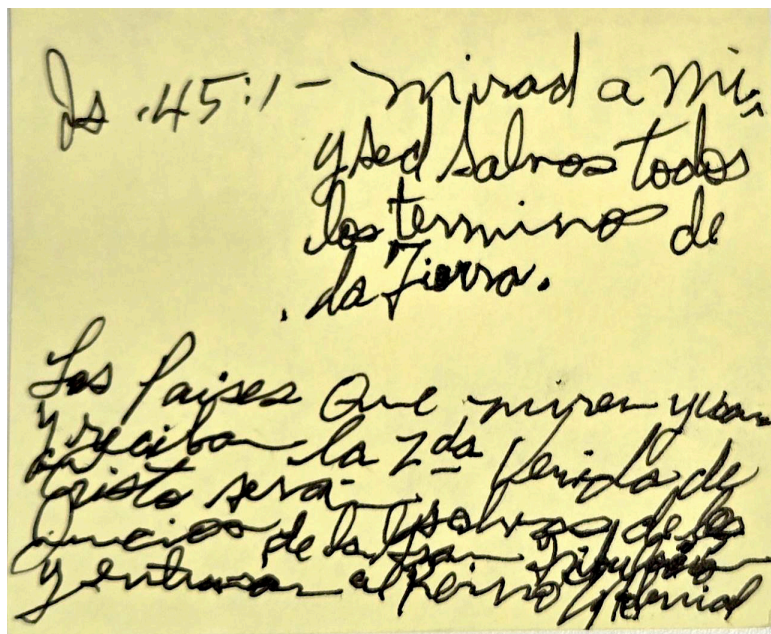 Is. 45:1 - mirad a mi,
y sed salvos todos
los terminos de
la Tierra.
Los Paises Que miren y
y reciban la 2da Venida de
Cristo seran de los
Juicios de la Gran Tribulación
y entraran al Reino